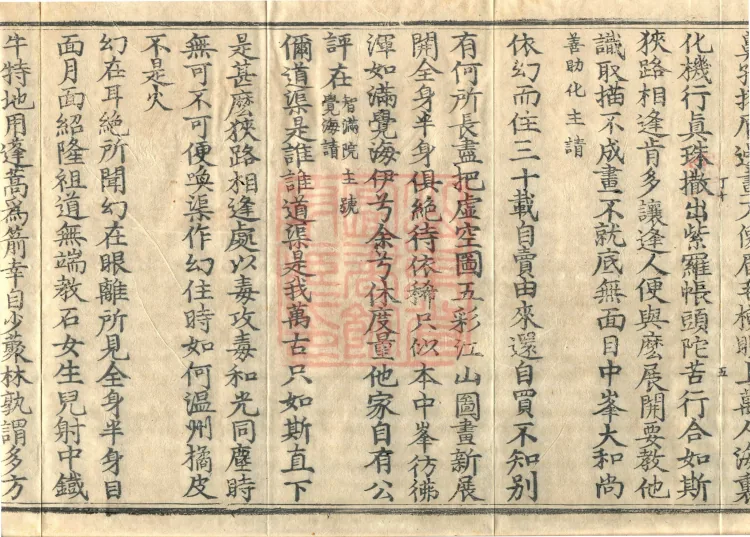 化機行眞珠撒出紫羅帳頭陀苦行合如斯
狹路相逢肯多讓逢人便與麽展開要教他
識取描不成畫不就底無面目中峯大和尚
善助化主請
依幻而住三十載自賣由來還自買不知別
有何所長盡把虛空圖五彩江山圖畫新展
開全身半身俱絕待依稀只似本中峯彷彿
渾如滿覺海伊兮余兮休度量他家自有公
評在 智滿院主號
覺海請
儞道渠是誰誰道渠是我萬古只如斯直下
是甚麽狹路相逢處以毒攻毒和光同塵時
無可不可便喚渠作幻住時如何溫州橘皮
不是火
幻在耳絕所聞幻在眼離所見全身半身日
面月面紹隆祖道無端教石女生兒射中鐵
牛特地用蓬蒿爲箭幸自少藂林孰謂多方
丁十
五